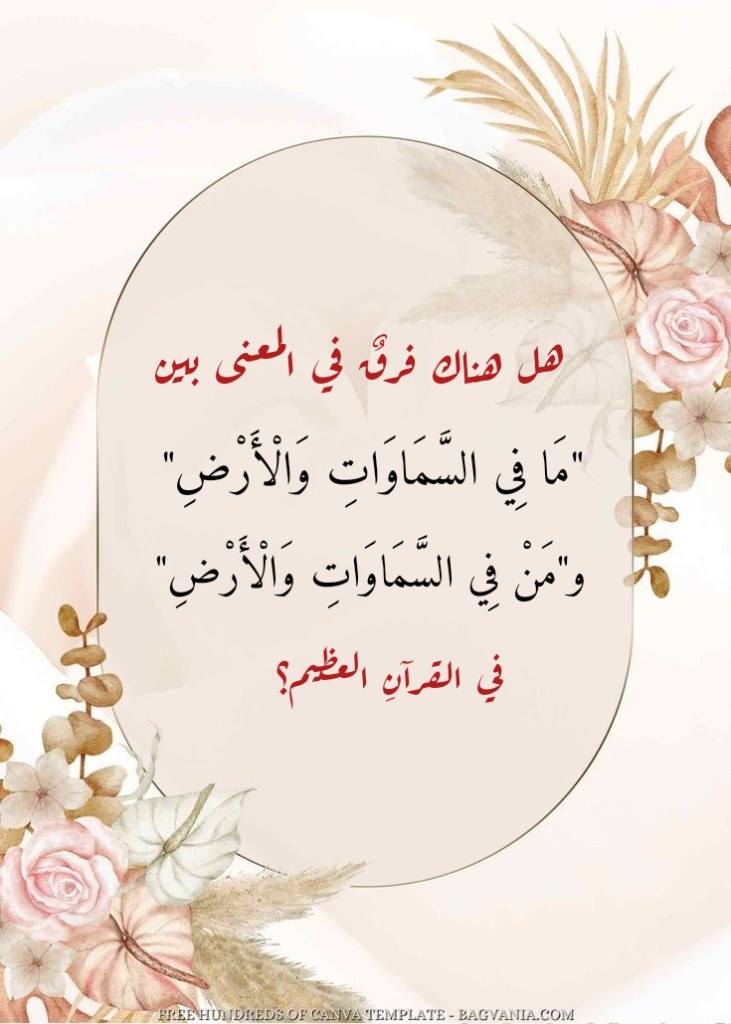 هل هناك فرقٌ في المعنى بين
"مَا فِي السَّمَاوَاتِ وَالْأَرْضِ"
و"مَنْ فِي السَّمَاوَاتِ وَالْأَرْضِ"
في القرآنِ العظيم؟
FREE HUNDREDS OF CANVA TEMPLATE - BAGVANIA.COM